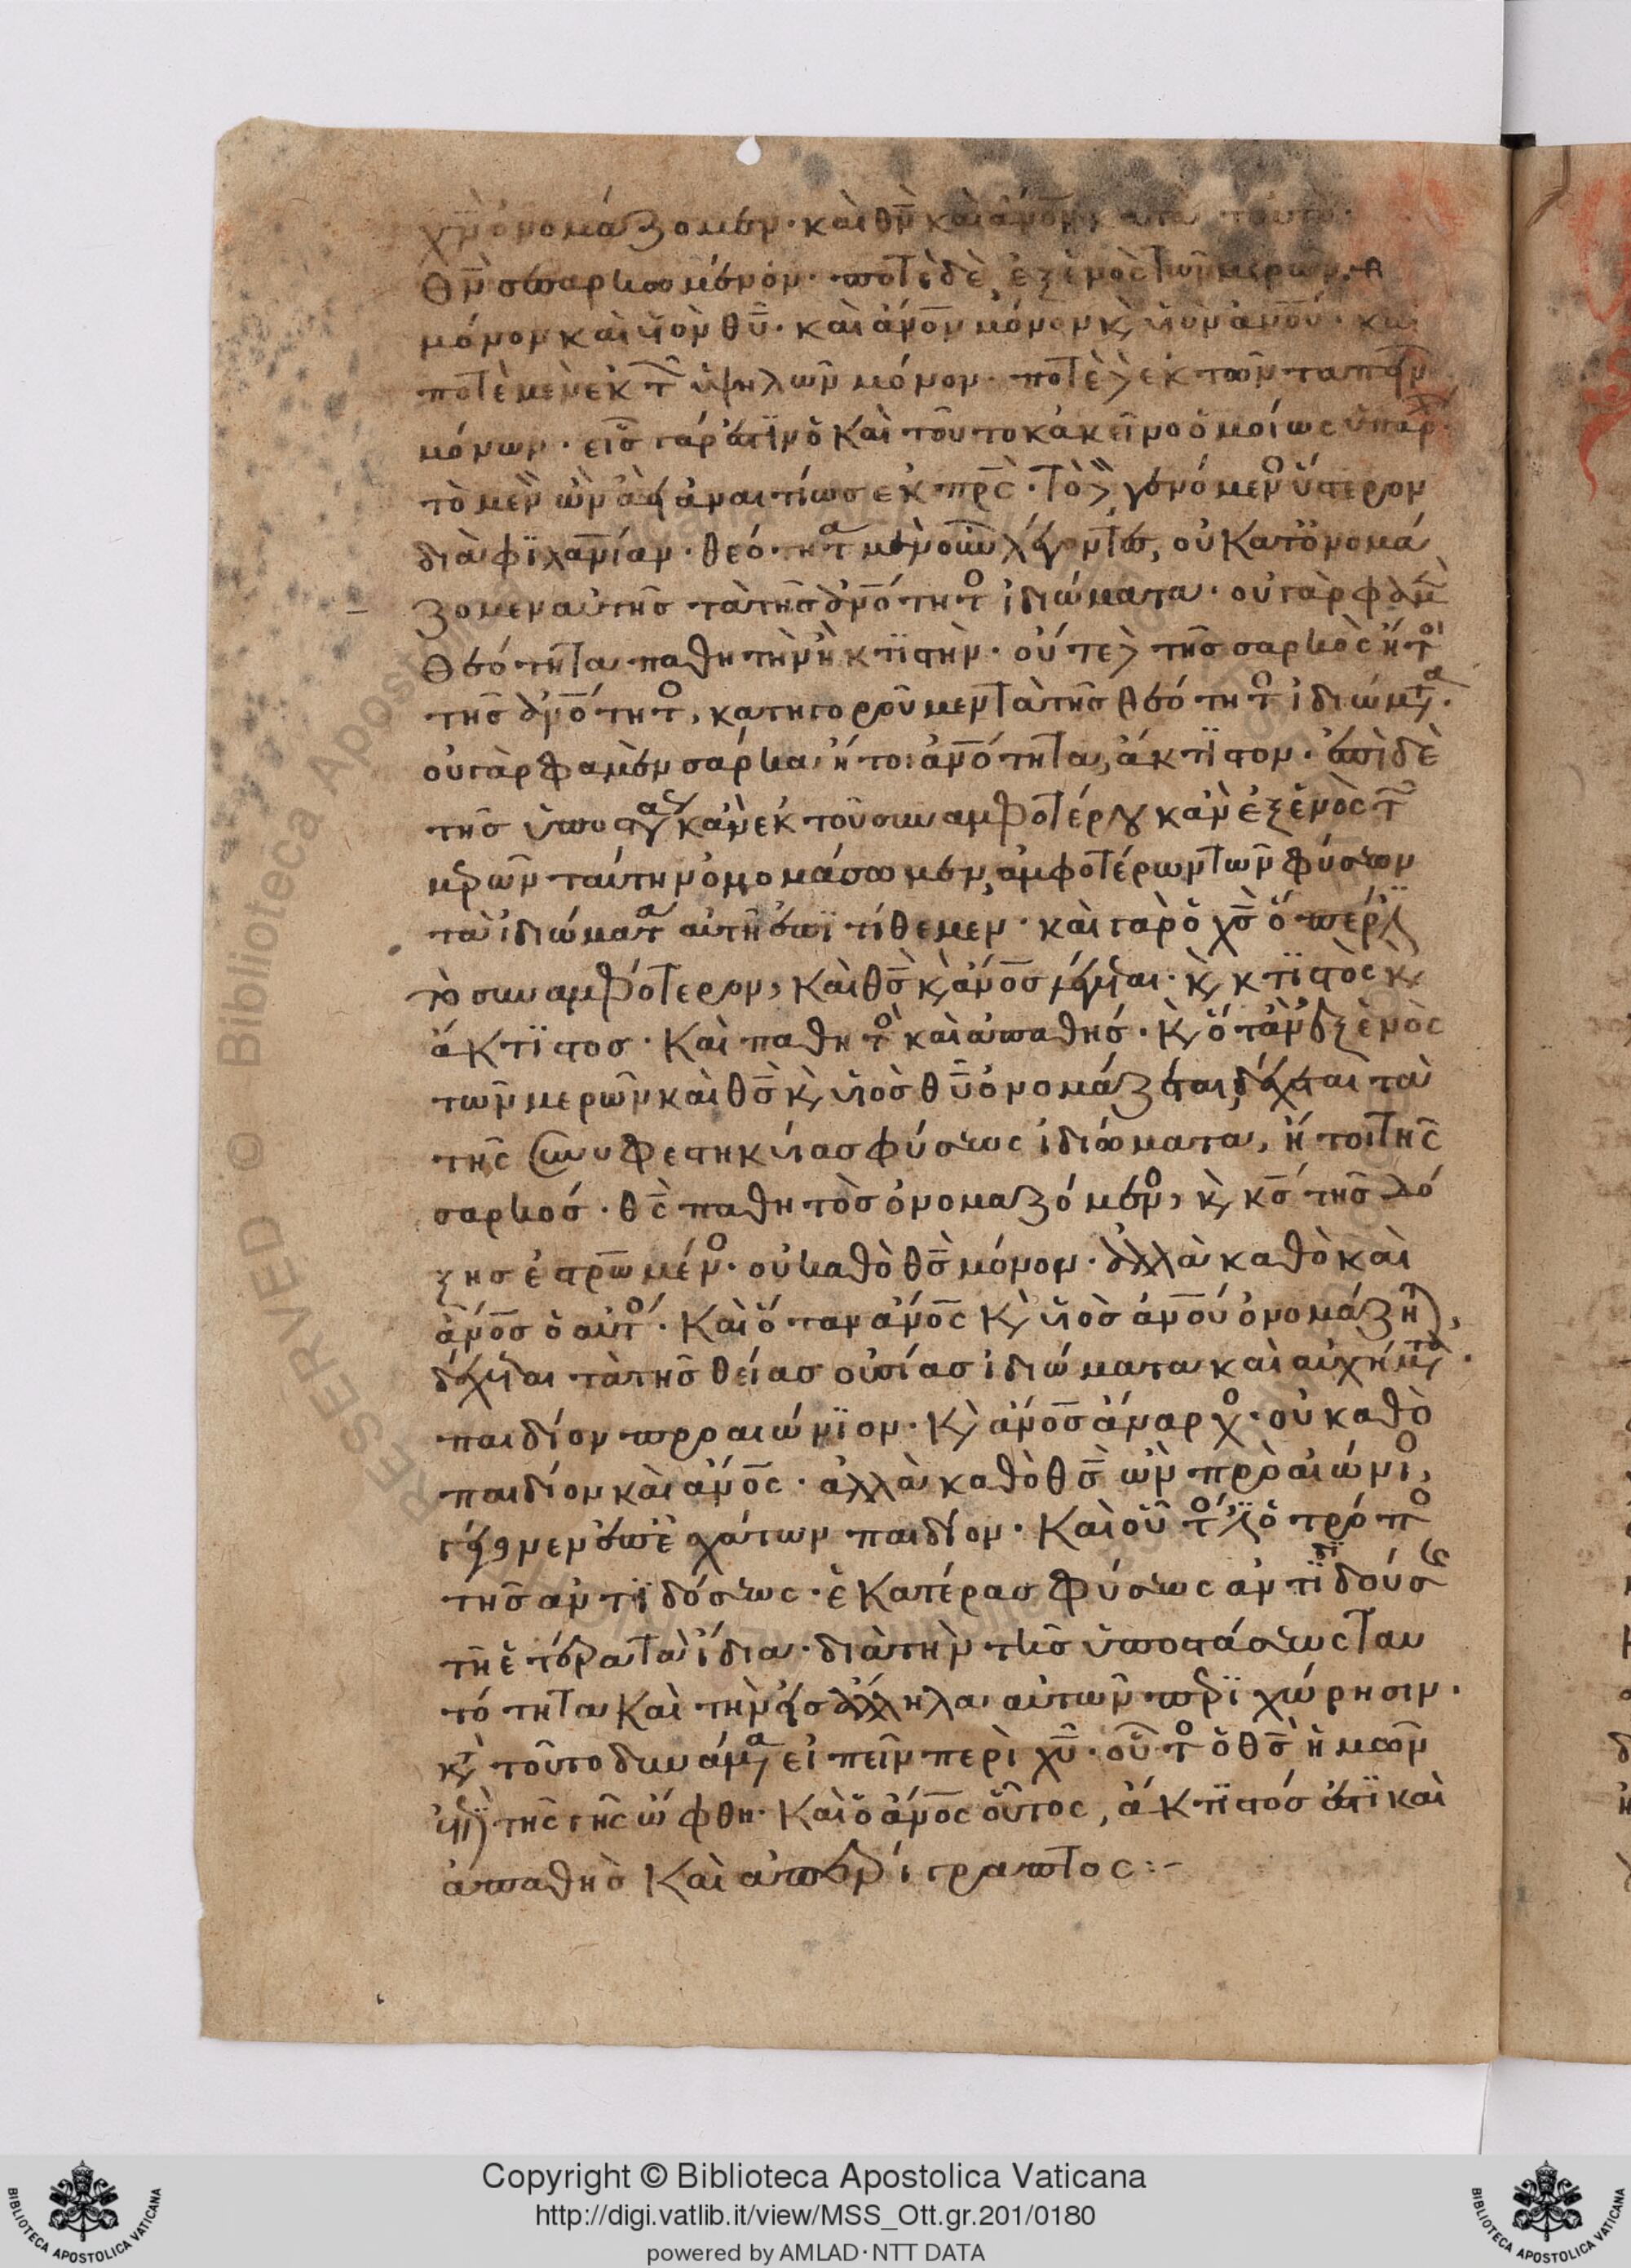 χν ὀνομάζομεν· καὶ θν καὶ ἄνον κατὰ ταὐτὸ·
θν σεσαρκωμένον· ποτὲ δὲ ἐξ ἑνὸς τῶν μερῶν· θν
μόνον καὶ υἱὸν θυ· καὶ ἄνον μόνον κ, υἱὸν ἀνου· καὶ
ποτὲ μὲν ἐκ τῶν ὑψηλῶν μόνον· ποτὲ δὲ ἐκ τῶν ταπεινῶν
μόνων· εἷς γάρ ἐστιν ὁ καὶ τοῦτο κἀκεῖνο ὁμοίως ὑπάρχων
τὸ μὲν ὢν ἀεὶ ἀναιτίως ἐκ πρς· τὸ δὲ γενόμενος ὕστερον
διὰ φιλανιαν· θεότητα μὲν οὖν λέγοντες, οὐ κατονομά
ζομεν αὐτῆς τὰ τῆς ἀνότητος ἰδιώματα· οὐ γὰρ φαμὲν
θεότητα παθητὴν ἢ κτιστὴν· οὔτε δὲ τῆς σαρκὸς ἤτοι
τῆς ἀνότητος, κατηγοροῦμεν τὰ τῆς θεότητος ἰδιώματα·
οὐ γὰρ φαμὲν σάρκα ἤτοι ἀνότητα, ἄκτιστον· ἐπὶ δὲ
τῆς ὑποστάσεως κἂν ἐκ τοῦ συναμφοτέρου κἂν ἐξ ἑνὸς τῶν
μερῶν ταύτην ὀνομάσωμεν, ἀμφοτέρων τῶν φύσεων
τὰ ἰδιώματα αὐτῆ ἐπιτίθεμεν· καὶ γὰρ ὁ χς ὅπερ ἐστὶ
τὸ συναμφότερον, καὶ θς κ, ἄνος λέγεται· κ, κτιστὸς κ,
ἄκτιστος· καὶ παθητὸς καὶ ἀπαθής· κ, ὅταν ἐξ ἑνὸς
τῶν μερῶν καὶ θς κ, υἱὸς θυ ὀνομάζεται, δέχεται τὰ
τῆς συνυφεστηκυίας φύσεως ἰδιώματα, ἤτοι τῆς
σαρκός· θς παθητὸς ὀνομαζόμενος, κ, κς τῆς δό
ξης ἐστρωμένος· οὐ καθὸ θς μόνον· ἀλλὰ καθὸ καὶ
ἄνος ὁ αὐτός· καὶ ὅταν ἄνος κ, υἱὸς ἀνου ὀνομάζηται,
δέχεται τὰ τῆς θείας οὐσίας ἰδιώματα καὶ αὐχήματα·
παιδίον προαιώνιον· κ, ἄνος ἄναρχος· οὐ καθὸ
παιδίον καὶ ἄνος· ἀλλὰ καθὸ θς ὢν προαιώνιος,
γέγονεν ἐπ ἐσχάτων παιδίον· καὶ οὗτός ἐστιν ὁ τρόπος
τῆς ἀντιδόσεως· ἑκατέρας φύσεως ἀντιδιδούσης
τῆ ἑτέρα τὰ ἴδια· διὰ τὴν τῆς ὑποστάσεως ταυ
τότητα καὶ τὴν εἰς ἄλληλα αὐτῶν περιχώρησιν·
κατὰ τοῦτο δυνάμεθα εἰπεῖν περὶ χυ· οὗτος ὁ θς ἡμῶν
ἐπὶ τῆς γῆς ὤφθη· καὶ ὁ ἄνος οὗτος, ἄκτιστός ἐστι καὶ
ἀπαθὴς καὶ ἀπερίγραπτος:-
Copyright © Biblioteca Apostolica Vaticana
http://digi.vatlib.it/view/MSS_Ott.gr.201/0180
powered by AMLAD·NTT DATA